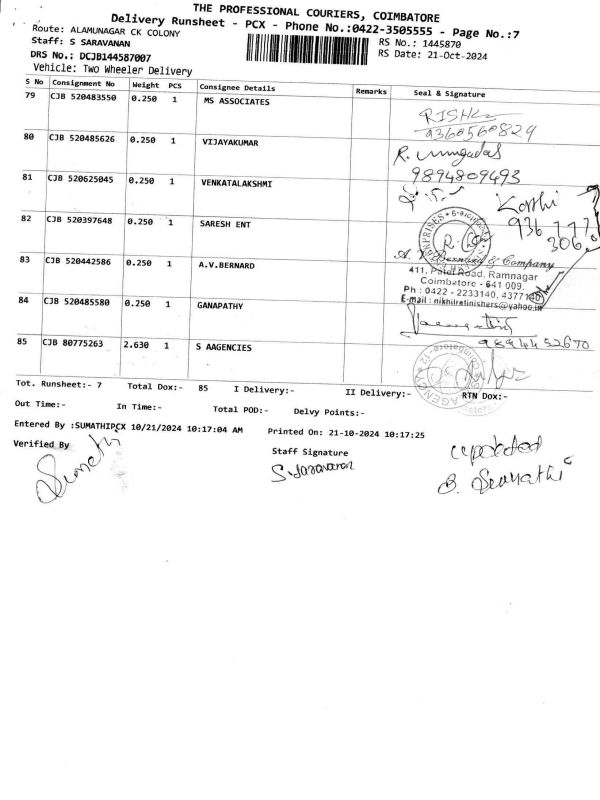 THE PROFESSIONAL COURIERS, COIMBATORE
Delivery Runsheet - PCX - Phone No.:0422-3505555 - Page No.:7
Route: ALAMUNAGAR CK COLONY
Staff: S SARAVANAN RS No.: 1445870
DRS No.: DCJB144587007 RS Date: 21-Oct-2024
Vehicle: Two Wheeler Delivery
S No Consignment No Weight PCS Consignee Details Remarks Seal & Signature
79 CJB 520483550 0.250 1 MS ASSOCIATES
9360560829
80 CJB 520485626 0.250 1 VIJAYAKUMAR
9894809493
81 CJB 520625045 0.250 1 VENKATALAKSHMI
82 CJB 520397648 0.250 1 SARESH ENT
83 CJB 520442586 0.250 1 A.V.BERNARD
& Company
411, Patel Road, Ramnagar
Coimbatore - 641 009.
Ph : 0422 - 2233140, 4377140
E-mail : nikhilrefinishers@yahoo.in
84 CJB 520485580 0.250 1 GANAPATHY
9894452670
85 CJB 80775263 2.630 1 S AAGENCIES
Tot. Runsheet:- 7 Total Dox:- 85 I Delivery:- II Delivery:- RTN Dox:-
Out Time:- In Time:- Total POD:- Delvy Points:-
Entered By :SUMATHIPCX 10/21/2024 10:17:04 AM Printed On: 21-10-2024 10:17:25
Verified By Staff Signature
Sumathi S.Saravanan updated
B. Sumathi